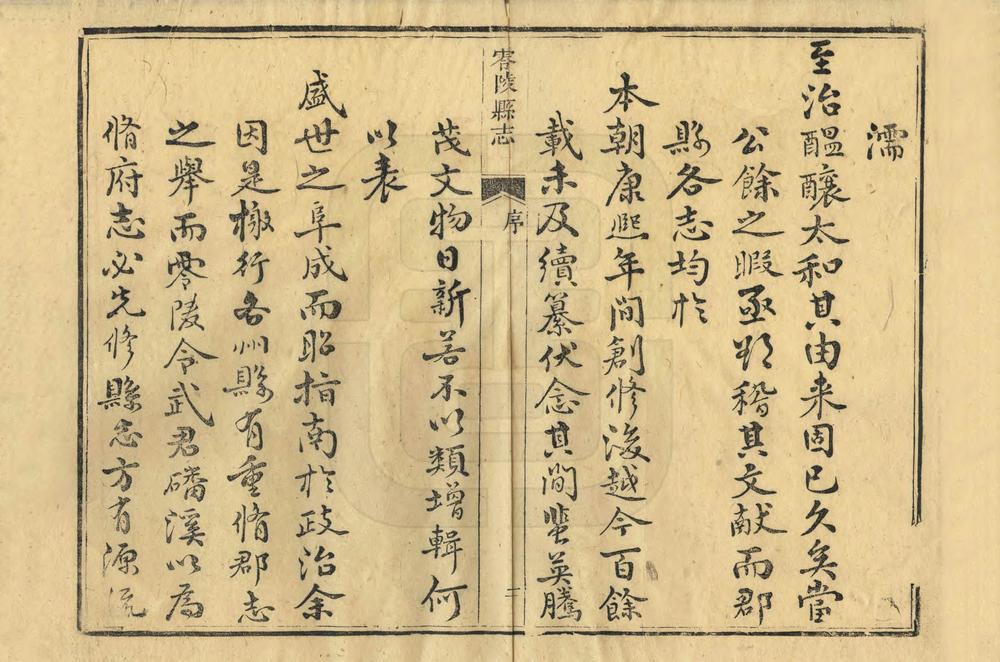 濡
至治醞釀太和其由来固已久矣當
公餘之暇亟欲稽其文献而郡
縣各志均於
本朝康熙年間創修後越今百餘
載未及續纂伏念其間蜚英騰
零陵縣志 序 二
茂文物日新若不以類增輯何
以表
盛世之阜成而昭指南於政治余
因是檄行各州縣有重脩郡志
之舉而零陵令武君磻溪以為
脩府志必先修縣志方有源流